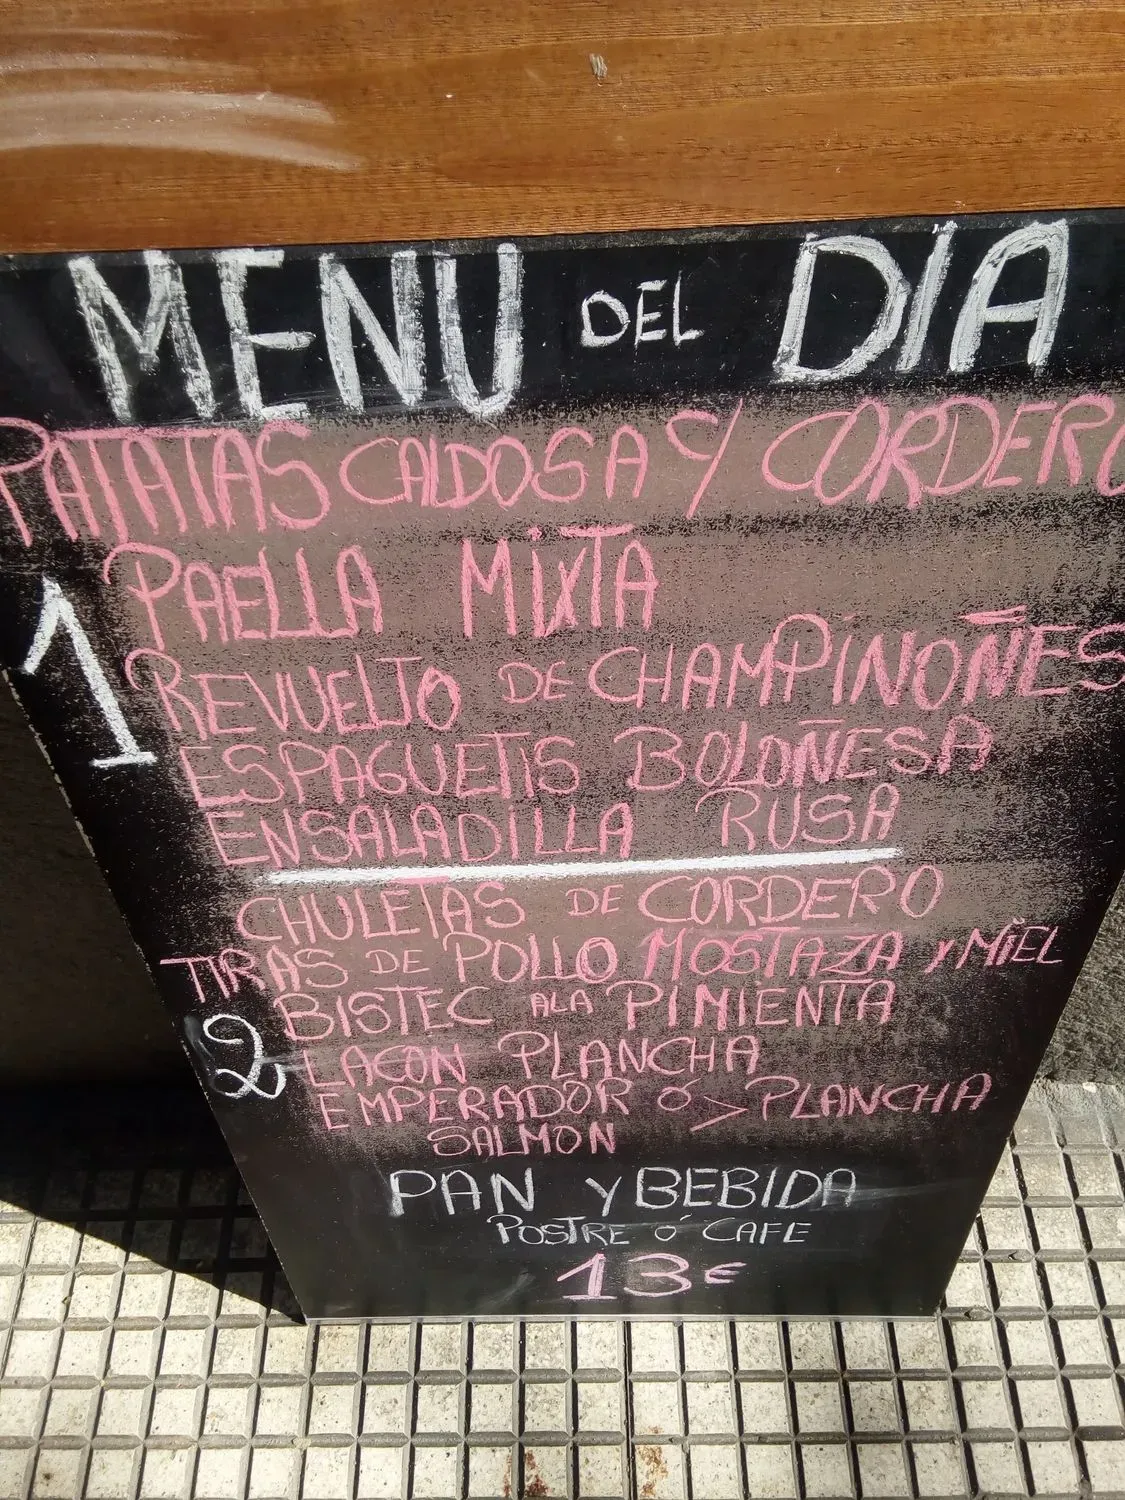 MENU DEL DIA
PATATAS CALDOSA Y CORDERO
1
PAELLA MIXTA
REVUELTO DE CHAMPIÑOÑES
ESPAGUETIS BOLOÑESA
ENSALADILLA RUSA
CHULETAS DE CORDERO
TIRAS DE POLLO MOSTAZA Y MIEL
2
BISTEC ALA PIMIENTA
LACON PLANCHA
EMPERADOR Ó > PLANCHA
SALMON
PAN Y BEBIDA
POSTRE Ó CAFE
13€